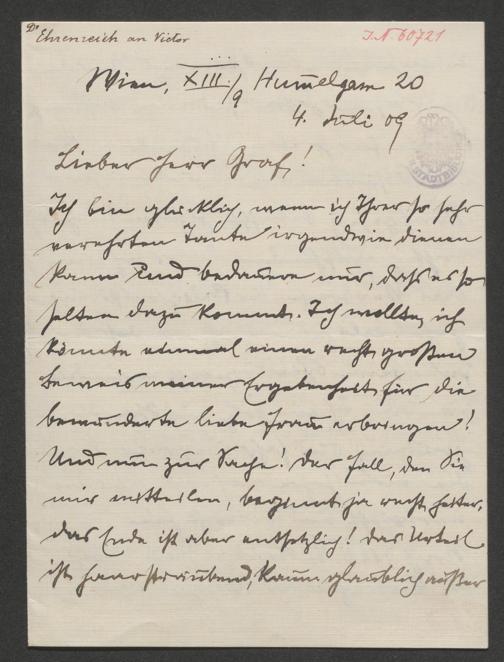 Dr Ehrenreich an Victor
I.N. 60721
Wien, XIII./9 Hummelgasse 20
4. Juli 09
Lieber Herr Graf!
Ich bin glücklich, wenn ich Ihrer so sehr
verehrten Tante irgendwie dienen
kann und bedauere nur, daß es so
selten dazu kommt. Ich wollte, ich
könnte einmal einen recht großen
Beweis meiner Ergebenheit für die
bewunderte liebe Frau erbringen!
Und nun zur Sache! Der Fall, den Sie
mir mitteilen, beginnt ja recht heiter,
das Ende ist aber entsetzlich! Das Urteil
ist haarsträubend, kaum glaublich außer
STADTBIBL